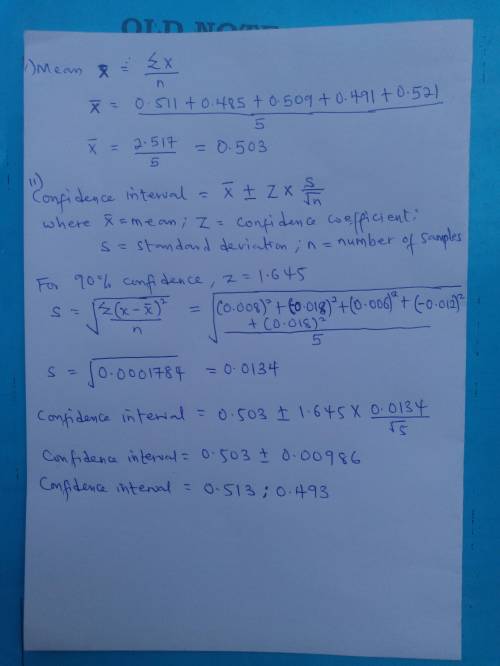 OLD NOTE
i) Mean x̄ = Σx/n
x̄ = (0.511 + 0.485 + 0.509 + 0.491 + 0.521)/5
x̄ = 2.517/5 = 0.503
ii)
Confidence interval = x̄ ± Z × S/√n
where x̄ = mean; Z = confidence coefficient;
S = standard deviation; n = number of samples
For 90% confidence, z = 1.645
S = √(Σ(x - x̄)²/n) = √(((0.008)² + (-0.018)² + (0.006)² + (-0.012)² + (0.018)²)/5)
S = √0.0001784 = 0.0134
Confidence interval = 0.503 ± 1.645 × 0.0134/√5
Confidence interval = 0.503 ± 0.00986
Confidence interval = 0.513 ; 0.493